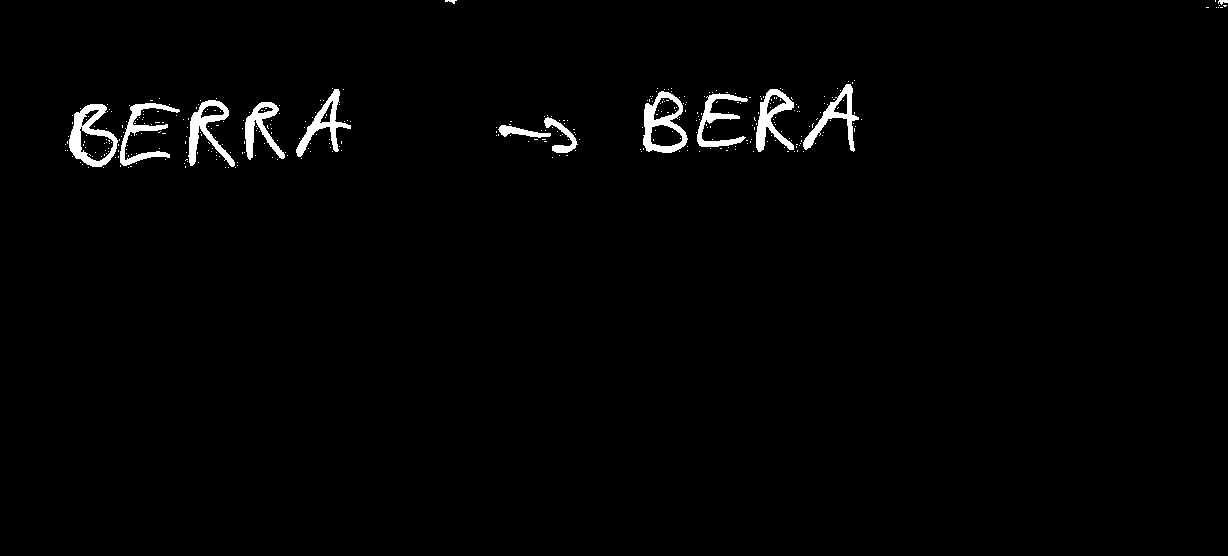 BERRA → BERA